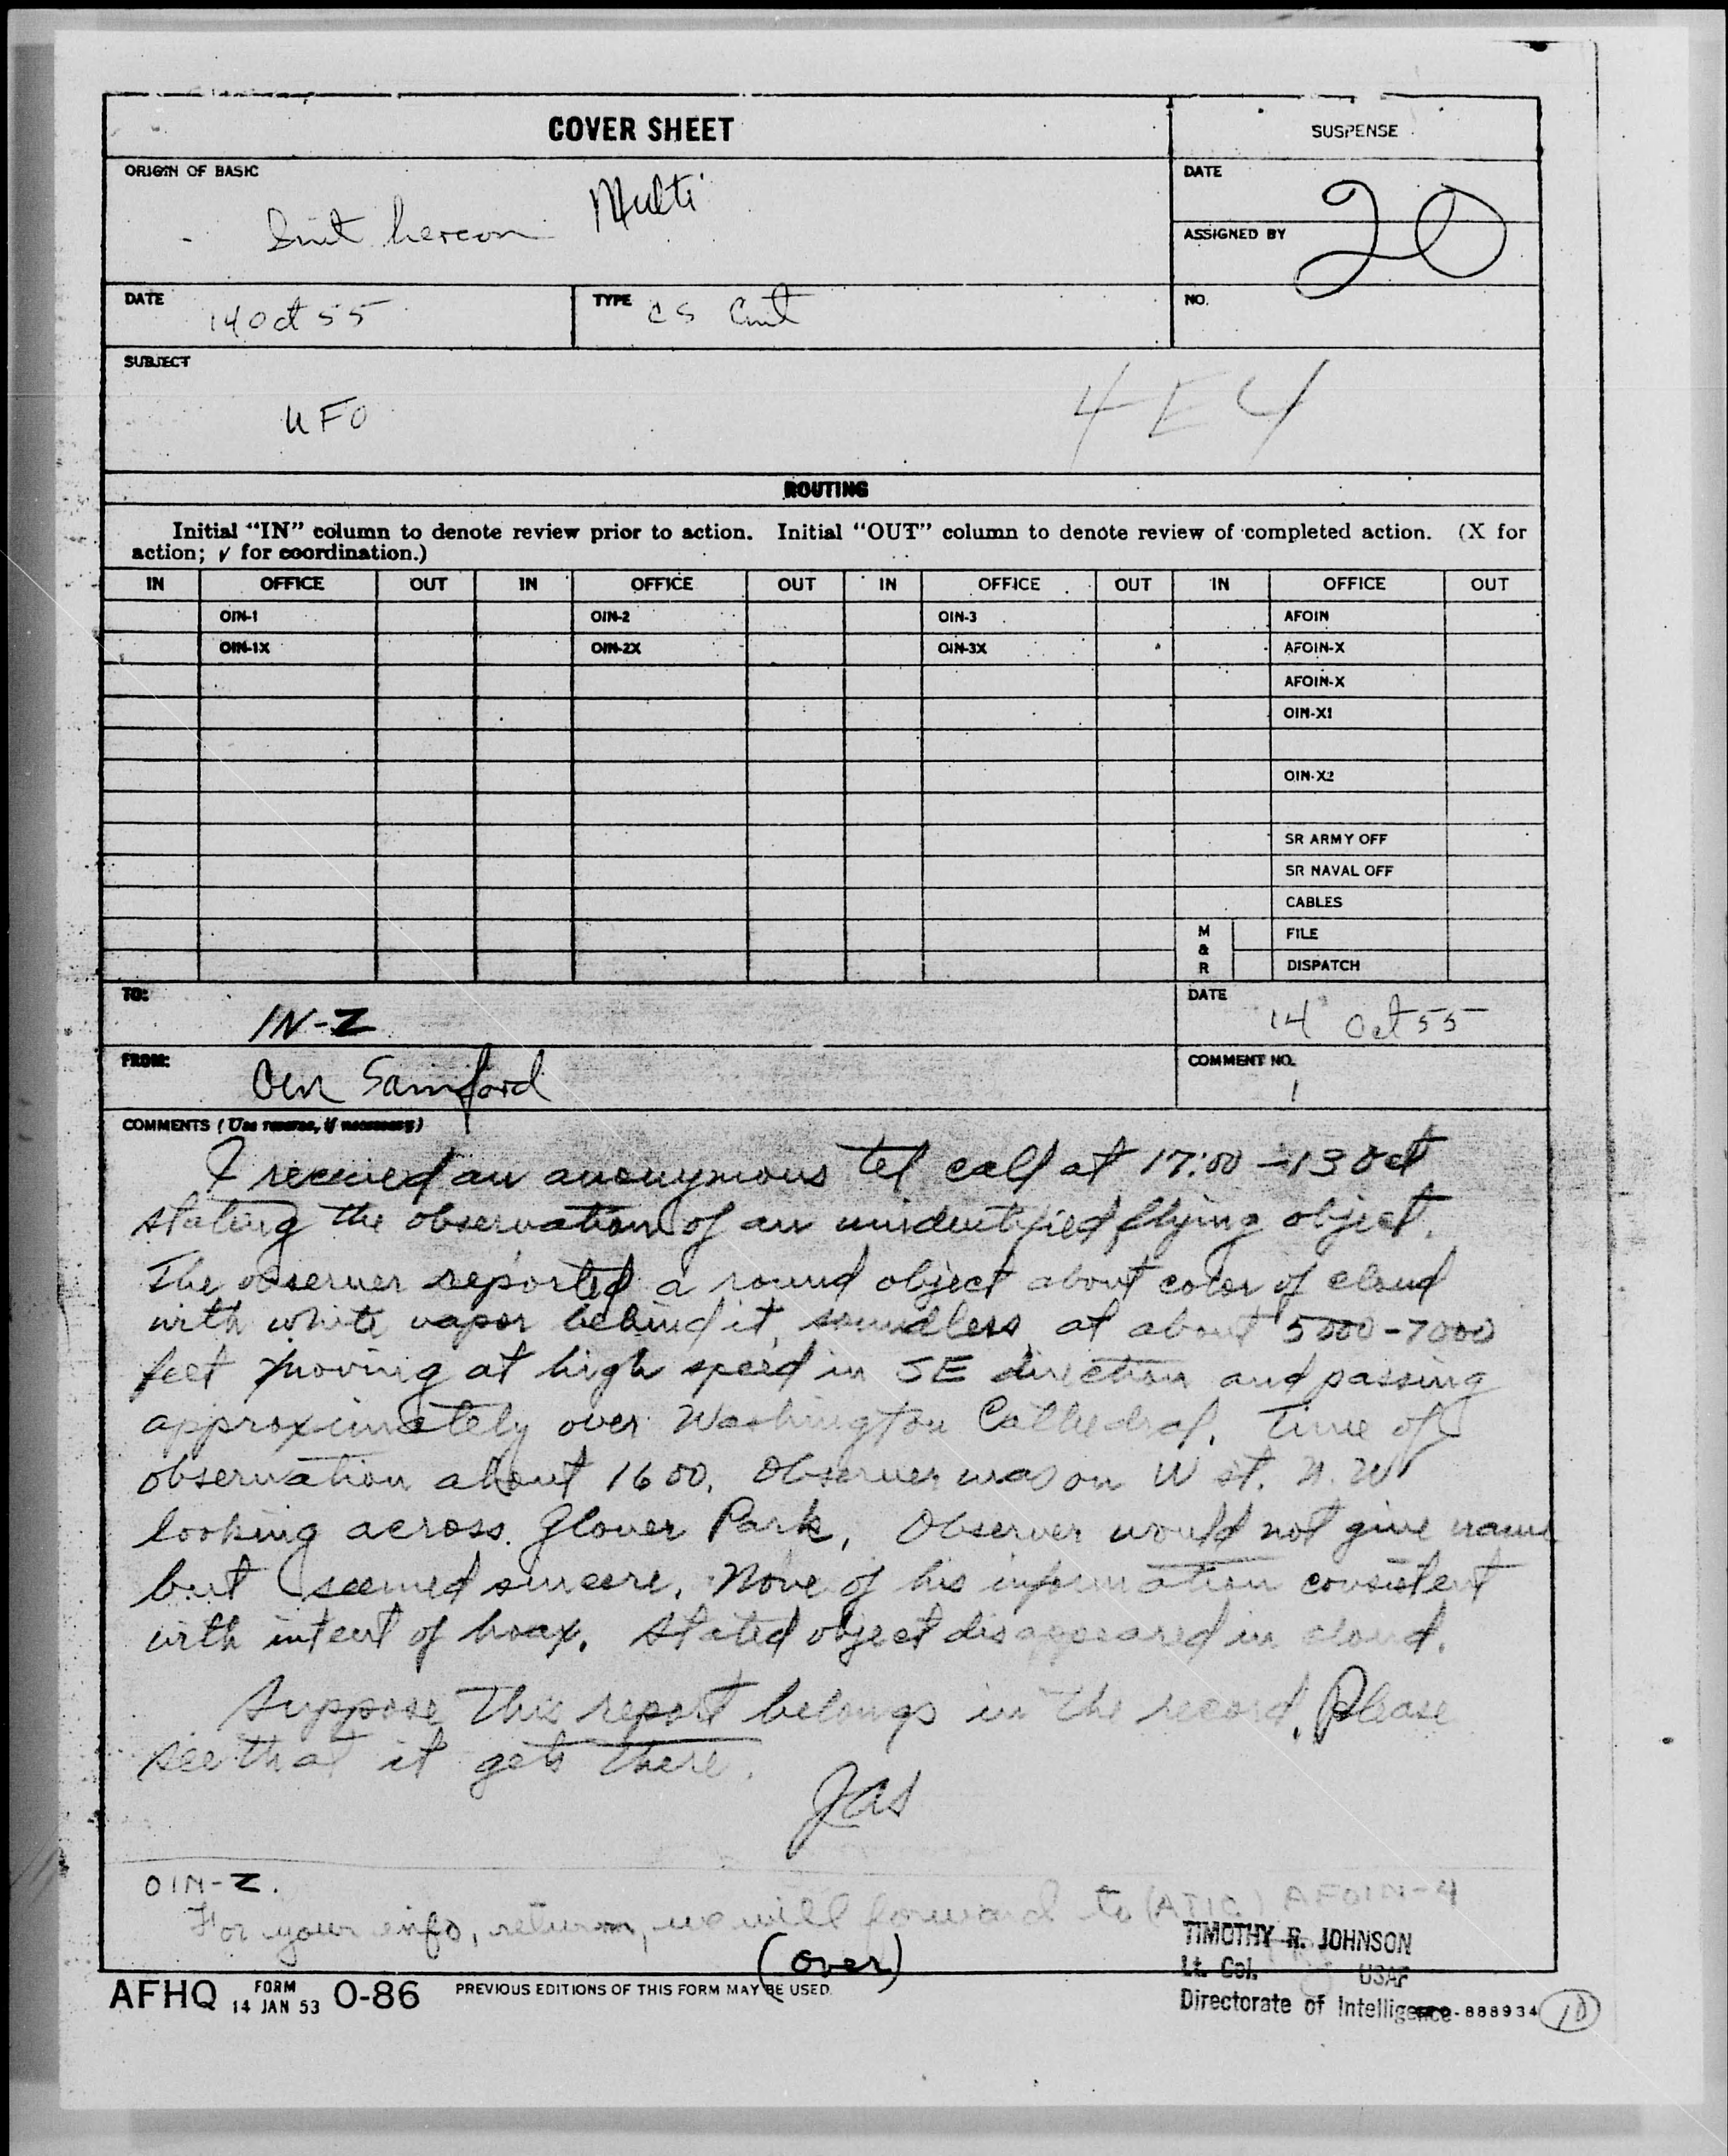 COVER SHEET
SUSPENSE
ORIGIN OF BASIC
Multi
hereon
DATE
20
ASSIGNED BY
DATE
14 Oct 55
TYPE
CS Cmt
NO.
SUBJECT
UFO
4E4
ROUTING
Initial "IN" column to denote review prior to action. Initial "OUT" column to denote review of completed action. (X for
action; ✓ for coordination.)
IN OFFICE OUT IN OFFICE OUT IN OFFICE OUT IN OFFICE OUT
OIN-1 OIN-2 OIN-3 AFOIN
OIN-1X OIN-2X OIN-3X AFOIN-X
AFOIN-X
OIN-X1
OIN-X2
SR ARMY OFF
SR NAVAL OFF
CABLES
M & R FILE
DISPATCH
TO:
IN-Z
DATE
14 Oct 55
FROM:
Samford
COMMENT NO.
1
COMMENTS (Use reverse, if necessary)
I received an anonymous tel call at 17:00 - 13 Oct
stating the observation of an unidentified flying object.
The observer reported a round object about color of cloud
with white vapor behind it, soundless, at about 5000-7000
feet moving at high speed in SE direction and passing
approximately over Washington Cathedral. Time of
observation about 1600. Observer was on W st. N.W
looking across Glover Park. Observer would not give name
but seemed sincere. None of his information consistent
with intent of hoax. Stated object disappeared in cloud.
Suppose this report belongs in the record. Please
see that it gets there.
JAS
OIN-Z.
For your info, return, we will forward to (ATIC) AFOIN-4
TIMOTHY R. JOHNSON
(over)
Lt. Col. USAF
AFHQ FORM 14 JAN 53 O-86 PREVIOUS EDITIONS OF THIS FORM MAY BE USED.
Directorate of Intelligence
-888934
10